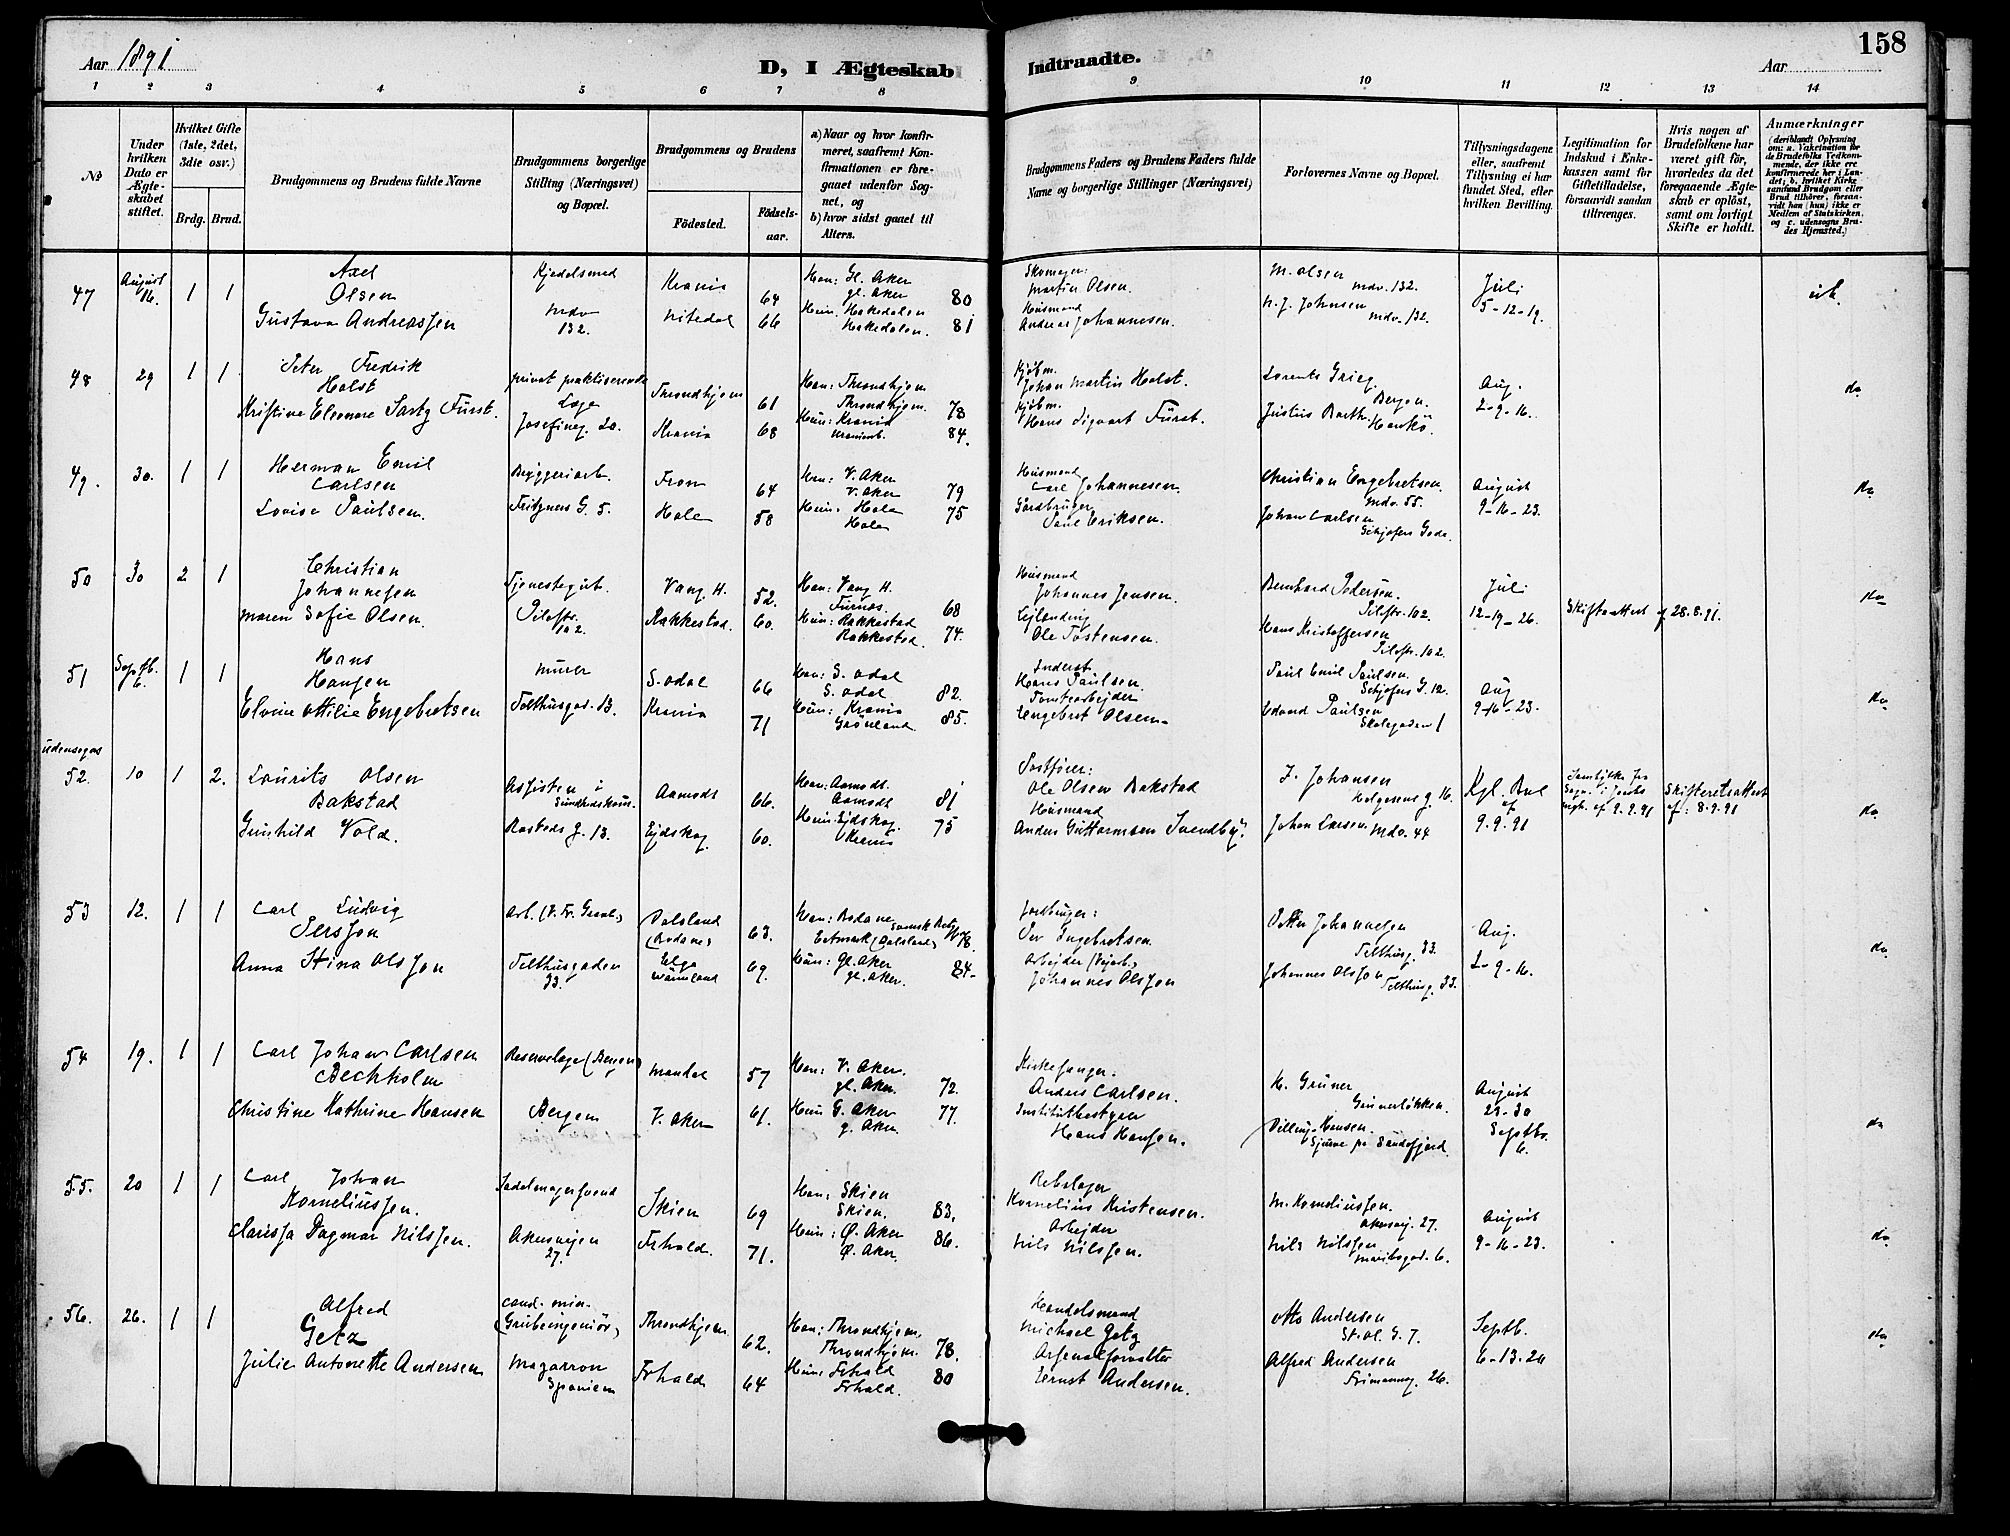 158
Aar 1891
D, I Ægteskab Indtraadte.
Aar
1 2 3 4 5 6 7 8 9 10 11 12 13 14
No
Under hvilken Dato er Ægteskabet stiftet.
Hvilket Gifte (1ste, 2det, 3die osv.)
Brdg. Brud.
Brudgommens og Brudens fulde Navne
Brudgommens borgerlige Stilling (Næringsvei) og Bopæl.
Brudgommens og Brudens
Födested.
Födselsaar.
a) Naar og hvor konfirmeret, saafremt Konfirmationen er foregaaet udenfor Sognet, og
b) hvor sidst gaaet til Alters.
Brudgommens Faders og Brudens Faders fulde Navne og borgerlige Stillinger (Næringsvei)
Forlovernes Navne og Bopæl.
Tillysningsdagene eller, saafremt Tillysning ei har fundet Sted, efter hvilken Bevilling.
Legitimation for Indskud i Enkekassen samt for Giftetilladelse, forsaavidt saadan tiltrænges.
Hvis nogen af Brudefolkene har været gift för, hvorledes da det foregaaende Ægteskab er oplöst, samt om lovligt Skifte er holdt.
Anmærkninger
(deriblandt Oplysning om: a. Vaksination for de Brudefolks Vedkommende, der ikke ere konfirmerede her i Landet; b. hvilket Kirkesamfund Brudgom eller Brud tilhörer, forsaavidt han (hun) ikke er Medlem af Statskirken, og c. udensogns Brudes Hjemsted.)
47 August 16. 1 1
Axel Olsen
Gustava Andreassen
Kjedelsmed
Mdv 132.
Krania 64
Nitedal 66
Han: Gl. Aker
gl. Aker 80
Hun: Hakedalen
Hakedalen. 81
Skomager:
Martin Olsen.
Husmand
Andreas Johannesen.
M. Olsen
Mdv. 132.
N. J. Johnsen
Mdv. 132.
Juli
5-12-19.
48 29 1 1
Peter Fredrik
Holst
Kristine Eleonore Fürst.
privat praktiserende
Læge
Josefineg. 20.
Throndhjem 61
Krania 68
Han: Throndhjem
Throndhjem. 78
Hun: Krania 84.
Kjøbm.
Johan Martin Holst.
Kjøbm.
Hans Sigvart Fürst.
Lorentz Grieg.
Bergen.
Justus Barth.
Hankø.
Aug.
2-9-16.
do
49. 30. 1 1
Herman Emil
Carlsen
Lovise Paulsen.
Bryggeriarb.
Fritzners G. 5.
Fron 64
Hole 58
Han: V. Aker
V. Aker 79
Hun: Hole 75
Hole
Husmand
Carl Johannesen.
Gårdbruger
Paul Eriksen.
Christian Engebretsen.
Mdv. 55.
Johan Carlsen
August
9-16-23.
do
50 30 2 1
Christian
Johannesen
Maren Sofie Olsen.
Tjenestegut.
Pilestr. 102.
Vang H. 52.
Rakkestad. 60.
Han: Vang H.
Furnæs. 68
Hun: Rakkestad
Rakkestad. 74.
Husmand
Johannes Jensen.
Ole Tostensen.
Bernhard Pedersen.
Pilestr. 102.
Hans Kristoffersen
Pilestr. 102.
Juli
12-19-26.
Skifteattest af 28.8.91.
do
51 Septb. 6. 1 1
Hans
Hansen
Elvine Ottilie Engebretsen
Murer
Telthusgad. 13.
S. Odal 66
Krania 71
Han: S. Odal
S. Odal 82.
Hun: Krania
Grønland 85.
Inderst
Hans Paulsen.
Tomtearbejder
Engebret Olsen.
Paul Emil Paulsen.
G. 12.
Edvard Paulsen
Skolegaden 1
Aug
9-16-23.
do
udensogns
52. 10 1 2.
Laurits Olsen
Bakstad
Gunhild Vold.
Assistent i
Sundhedskom.
Rosteds g. 13.
Aamodt 66.
Ejdskog. 60.
Han: Aamodt.
Aamodt 81
Hun: Ejdskog. 75
Krania
Postfører:
Ole Olsen Bakstad
Husmand
Anders Guttormsen Svendby.
J. Johansen
Helgesens g. 16.
Johan Larsen. Mdv. 44
Kgl. Bvl
af
9.9.91
af 9.9.91
Skifteretsattest
af: 8.9.91
do
53 12. 1 1
Carl Ludvig
Persson
Anna Stina Olsson
Telthusgaden 33.
Dalsland 63.
Wärmland 69.
Han: Bodane
(Dalsland) 78.
Hun: Gl. Aker 84.
gl. Aker.
Jordbruger:
Per Ingebretsen
Arbejder
Johannes Olsson
Petter Johannesen
Telthusg. 33.
Johannes Olsson
Telthusg. 33.
Aug.
2-9-16.
do
54 19. 1 1
Carl Johan Carlsen
Bechholm
Christine Kathrine Hansen
Reservelæge (Bergen)
Bergen
Mandal 57
V. Aker 61.
Han: V. Aker.
gl. Aker. 72.
Hun G. Aker 77.
g. Aker.
Kirkesanger.
Anders Carlsen.
Institutbestyrer
Hans Hansen.
H. Grüner
Grünerløkken.
Hansen.
Sandefjord.
August
23-30
Septbr.
6.
do
55. 20 1 1
Carl Johan
Korneliussen.
Clarissa Dagmar Nilssen.
Sadelmagersvend
Akersvejen
27.
Skien 69
Frhald. 71.
Han: Skien
Skien. 83.
Hun: Ø. Aker 86.
Ø. Aker.
Rebslager
Kornelius Kristensen.
Arbejder
Nils Nilssen.
M. Korneliussen.
Akersvej. 27.
Nils Nilssen
Maridsgad. 6.
August
9-16-23.
do
56. 26. 1 1
Alfred
Getz
Julie Antonette Andersen
cand. min.
(Grubeingeniør)
Mazarron
Spanien
Throndhjem. 62.
Frhald 64
Han: Throndhjem.
Throndhjem. 78.
Hun: Frhald 80
Frhald.
Handelsmand
Michael Getz
Arsenalforvalter
Ernst Andersen.
Otto Andersen
St. Ol. G. 7.
Alfred Andersen
Frimannsg. 26.
Septb.
6-13-20
do